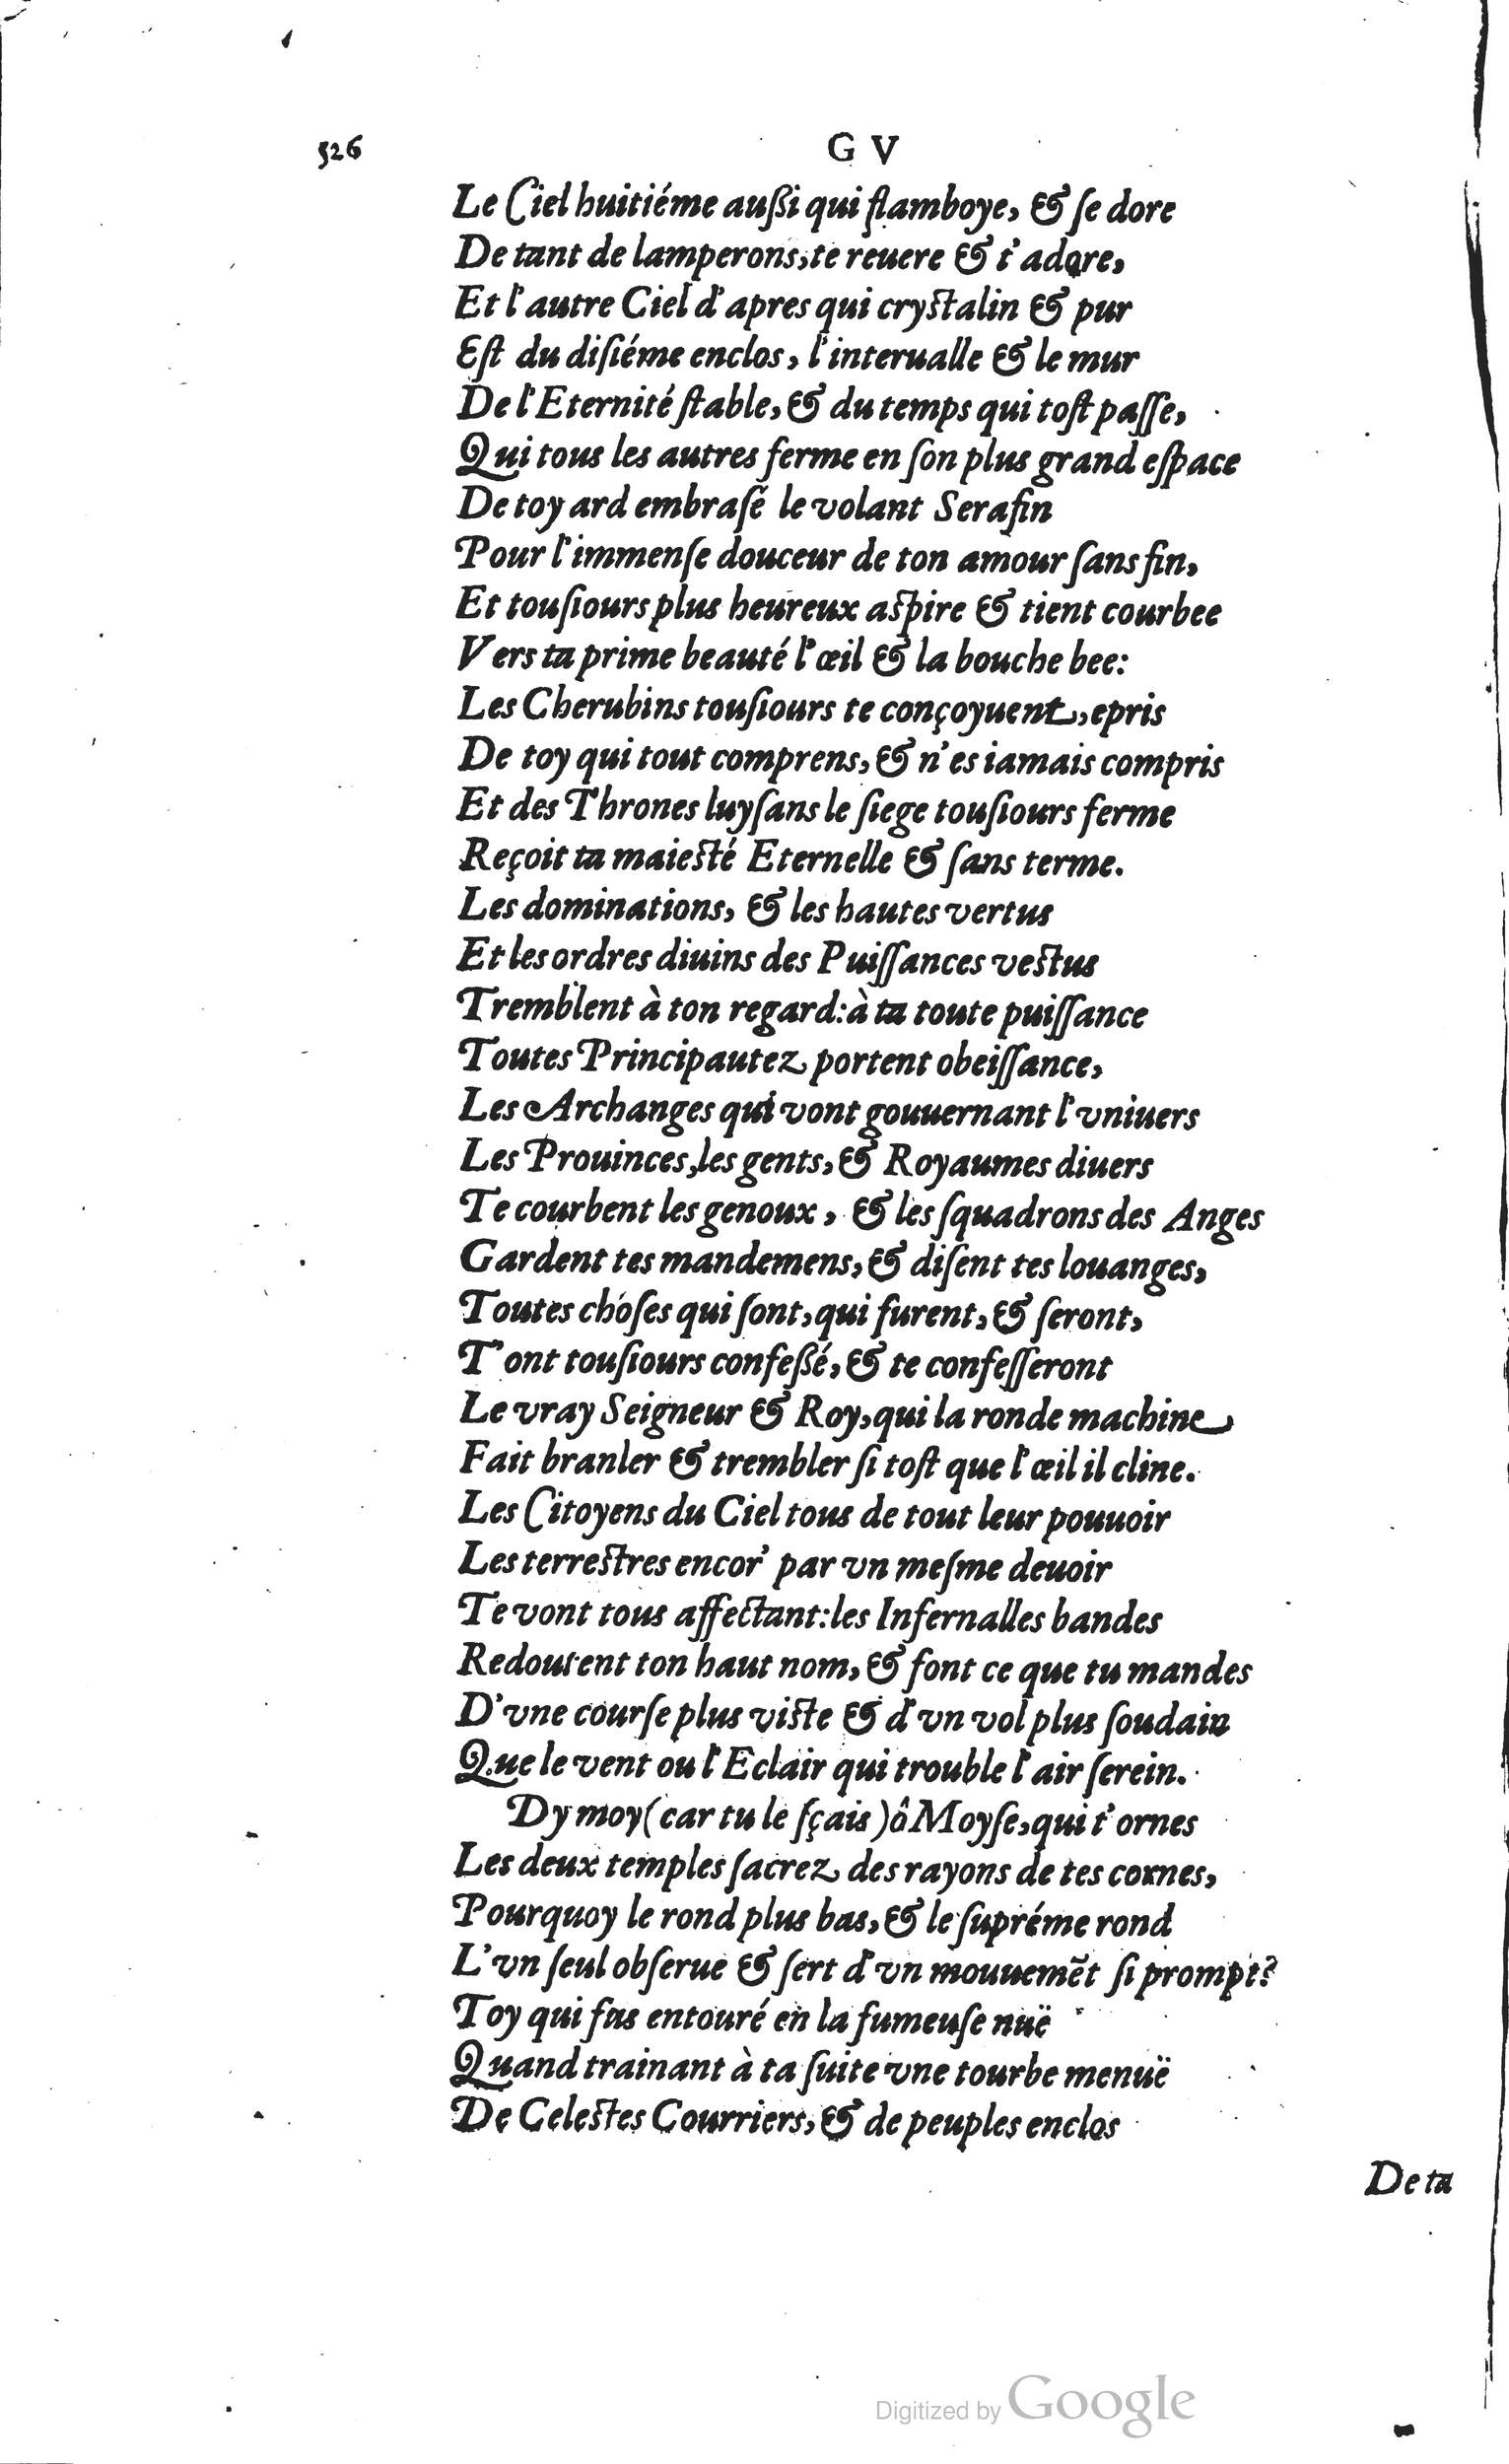 526 G V
Le Ciel huitiéme außi qui flamboye, & ſe dore
De tant de lamperons, te reuere & t'adore,
Et l'autre Ciel d'apres qui cryſtalin & pur
Eſt du diſiéme enclos, l'interualle & le mur
De l'Eternité ſtable, & du temps qui toſt paſſe,
Qui tous les autres ferme en ſon plus grand eſpace
De toy ard embraſé le volant Serafin
Pour l'immenſe douceur de ton amour ſans fin,
Et touſiours plus heureux aſpire & tient courbee
Vers ta prime beauté l'œil & la bouche bee:
Les Cherubins touſiours te conçoyuent, epris
De toy qui tout comprens, & n'es iamais compris
Et des Thrones luyſans le ſiege touſiours ferme
Reçoit ta maieſté Eternelle & ſans terme.
Les dominations, & les hautes vertus
Et les ordres diuins des Puiſſances veſtus
Tremblent à ton regard: à ta toute puiſſance
Toutes Principautez portent obeiſſance,
Les Archanges qui vont gouuernant l'vniuers
Les Prouinces, les gents, & Royaumes diuers
Te courbent les genoux, & les ſquadrons des Anges
Gardent tes mandemens, & diſent tes louanges,
Toutes choſes qui ſont, qui furent, & ſeront,
T'ont touſiours confeßé, & te confeſſeront
Le vray Seigneur & Roy, qui la ronde machine
Fait branler & trembler ſi toſt que l'œil il cline.
Les Citoyens du Ciel tous de tout leur pouuoir
Les terreſtres encor' par vn meſme deuoir
Te vont tous affectant: les Infernalles bandes
Redoutent ton haut nom, & font ce que tu mandes
D'vne courſe plus viſte & d'vn vol plus ſoudain
Que le vent ou l'Eclair qui trouble l'air ſerein.
Dy moy (car tu le ſçais) ô Moyſe, qui t'ornes
Les deux temples ſacrez des rayons de tes cornes,
Pourquoy le rond plus bas, & le ſupréme rond
L'vn ſeul obſerue & ſert d'vn mouuemẽt ſi prompt?
Toy qui fus entouré en la fumeuſe nuë
Quand trainant à ta ſuite vne tourbe menuë
De Celeſtes Courriers, & de peuples enclos
De ta
Digitized by Google